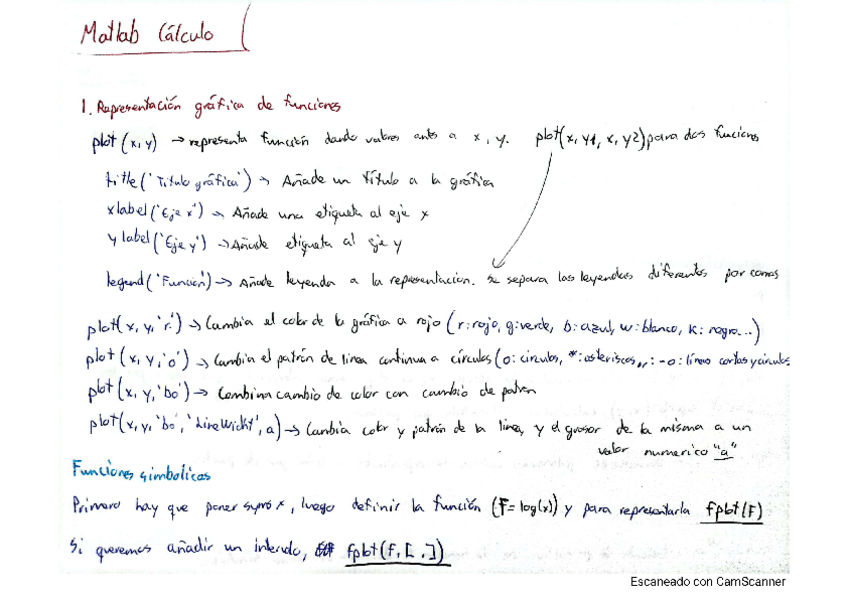 Matlab Cálculo
1. Representación gráfica de funciones
plot (x, y) → representa función dando valores antes a x, y. plot(x, y1, x, y2) para dos funciones
title ('Título gráfica') → Añade un título a la gráfica
xlabel ('Eje x') → Añade una etiqueta al eje x
ylabel ('Eje y') → Añade etiqueta al eje y
legend ('Función') → Añade leyenda a la representación. Se separa las leyendas diferentes por comas
plot(x, y, 'r') → Cambia el color de la gráfica a rojo (r: rojo, g: verde, b: azul, w: blanco, k: negro...)
plot (x, y, 'o') → Cambia el patrón de línea continua a círculos (o: círculos, *: asteriscos, : -o: línea cortas y círculos
plot (x, y, 'bo') → Combina cambio de color con cambio de patrón
plot(x, y, 'bo', 'LineWidht', a) → Cambia color y patrón de la línea, y el grosor de la misma a un
valor numerico "a"
Funciones simbolicas
Primero hay que poner syms x, luego definir la función (F = log(x)) y para representarla fplot(F)
Si queremos añadir un intervalo, fplot(f, [ , ])
Escaneado con CamScanner